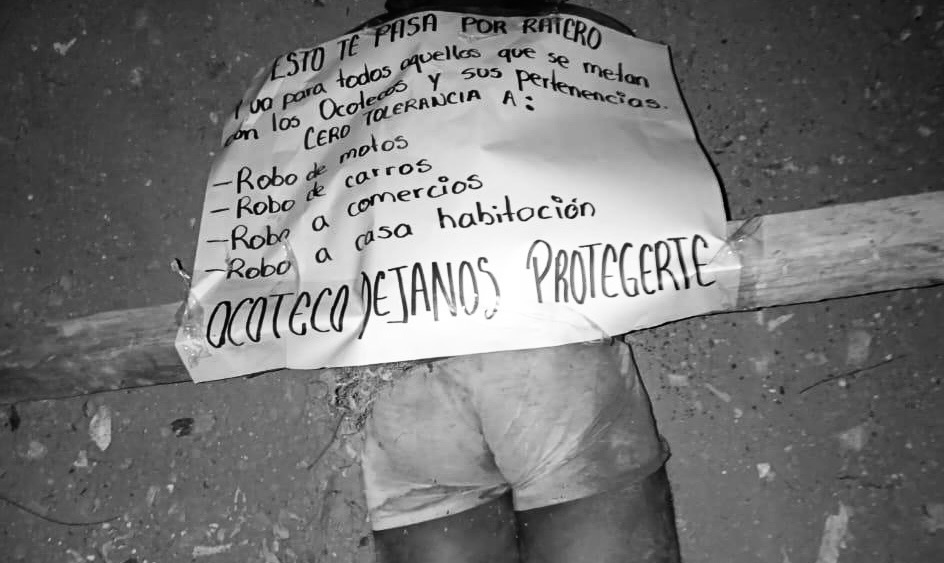 ESTO TE PASA POR RATERO
Y va para todos aquellos que se metan
con los Ocotecos y sus pertenencias.
CERO TOLERANCIA A:
- Robo de motos
- Robo de carros
- Robo a comercios
- Robo a casa habitación
OCOTECO DEJANOS PROTEGERTE